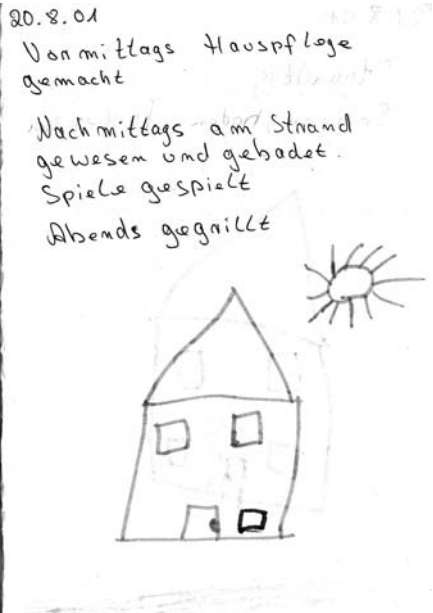 20.8.01
Vormittags Hauspflege
gemacht
Nachmittags am Strand
gewesen und gebadet.
Spiele gespielt
Abends gegrillt